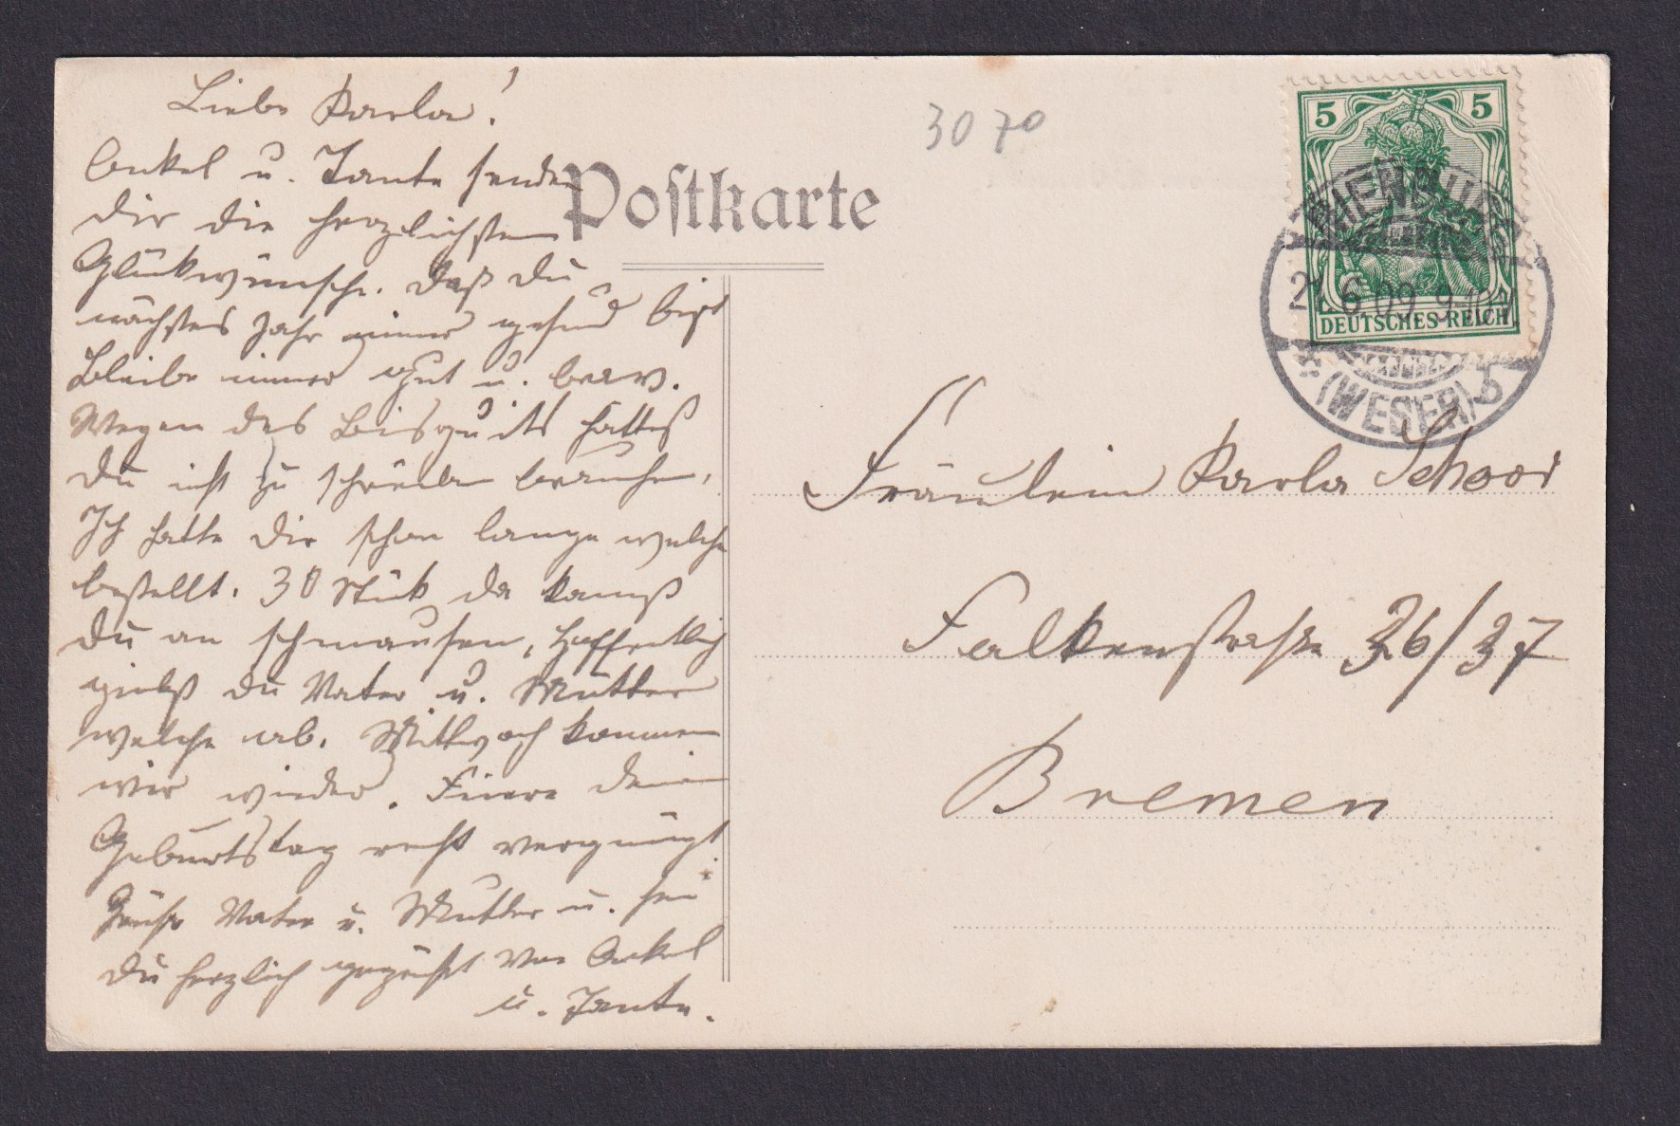 Liebe Karla!
Onkel u. Tante senden
Dir die herzlichsten
Glückwünsche. Daß Du
nächstes Jahr immer gesund bist
Bleibe immer gut u. brav.
Wegen des Bisquits hattest
Du nicht zu schreiben brauchen,
Ich hatte Dir schon lange welche
bestellt. 30 Stück da kannst
Du an schmausen, hoffentlich
giebst Du Vater u. Mutter
welche ab. Mittwoch kommen
wir wieder. Feiere Dein
Geburtstag recht vergnügt
Grüße Vater u. Mutter u. sei
Du herzlich gegrüßt von Onkel
u. Tante.
Postkarte
3070
5 5
DEUTSCHES REICH
NIENBURG
6.09. 9-10
* (WESER) b
Fräulein Karla Schoor
Falkenstraße 36/37
Bremen